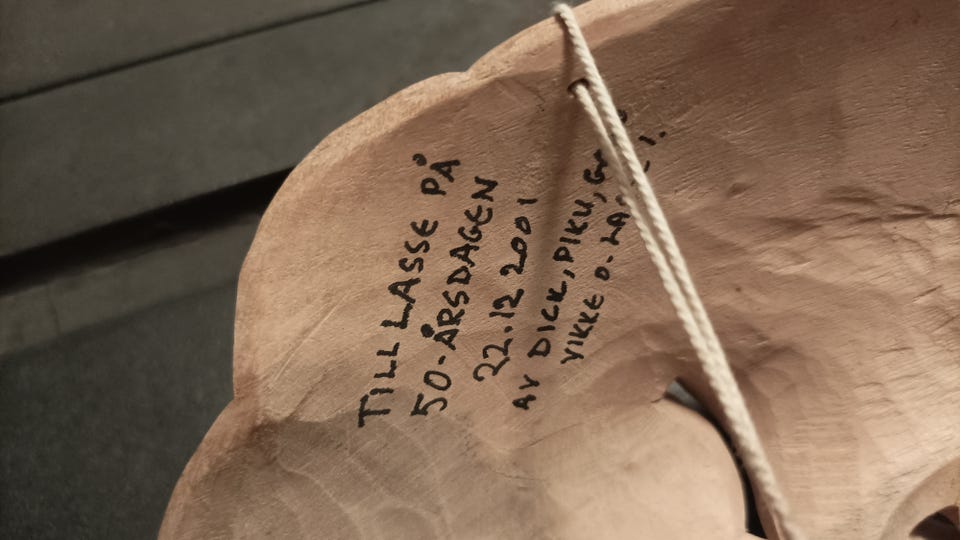 TILL LASSE PÅ
50-ÅRSDAGEN
22.12 2001
AV DICK, PIKU,
VIKKE O.